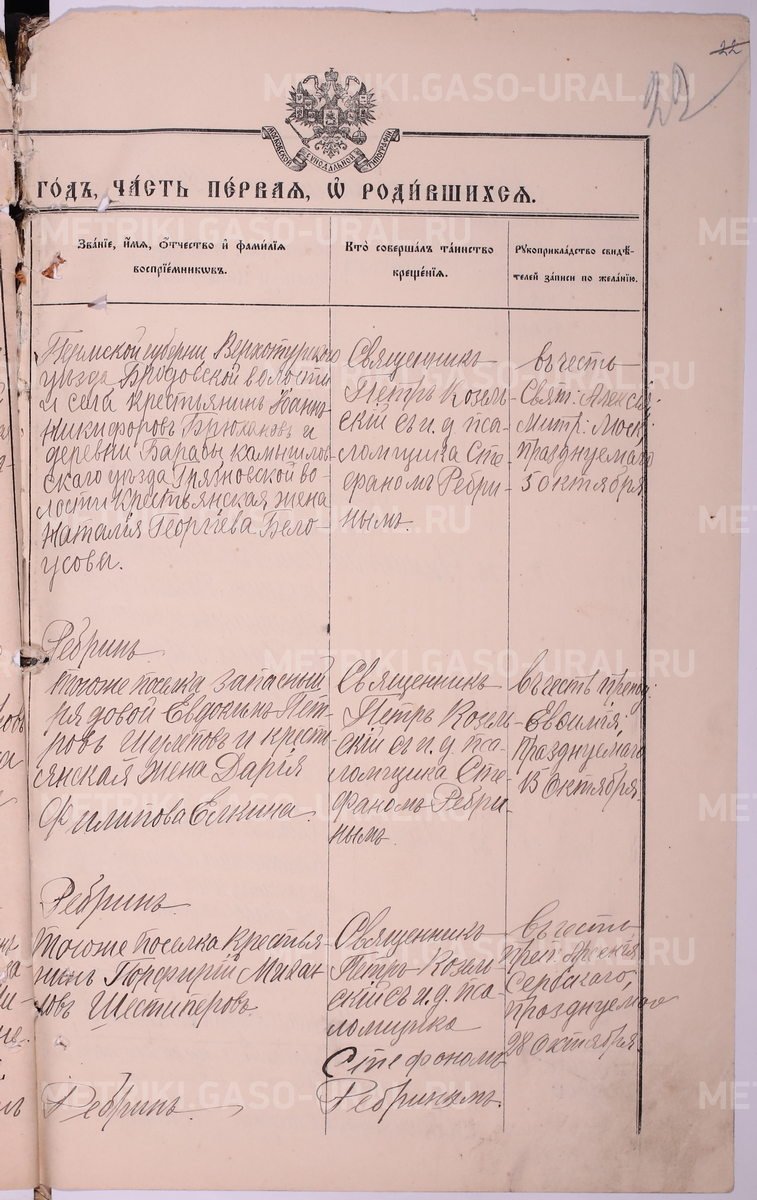 22
22
МОСКОВСКОЙ СѴНОДАЛЬНОЙ ТИПОГРАФІИ
ГО́ДЪ, ЧА́СТЬ ПЕ́РВАЯ, Ѡ҆ РОДИ́ВШИХСЯ.
Зва́нїе, и҆́мя, ѻ҆́тчество и҆ фами́лїѧ
воспрїе́мникѡвъ.
Кто̀ соверша́лъ та́инство
креще́нїѧ.
Рꙋкоприкла́дство свидѣ́-
телей за́писи по жела́нїю.
Пермской губерни Верхотурскаго
уѣзда Бродовской волости
и села крестьянинъ Іоаннъ
Никифоровъ Брюхановъ и
деревни Барабы камышлов
скаго уѣзда Грязновской во-
лости крестьянская жена
Наталія Георгіева Бело
усова.
Священникъ
Петръ Козель
скій съ и. д. пса-
ломщика Сте
фаномъ Ребри-
нымъ.
въ честь
Свят: Алексія,
Митр: Моск:
празднуемаго
5 октября
Ребринъ
тогоже поселка запасный
рядовой Евдокимъ Пет-
ровъ и крест-
янская жена Дарія
Филипова Елкина.
Священникъ
Петръ Козель-
скій съ и. д. пса-
ломщика Сте
фаномъ Ребри-
нымъ.
въ честь препод:
Евѳимія,
празднуемаго
15 октября.
Ребринъ
тогоже поселка крестья-
нинъ Порфирій Михаи
ловъ Шестиперовъ.
Священникъ
Петръ Козель-
скій съ и. д. пса
ломщика
Стефономъ
Ребринымъ.
въ честь
преп. Арсенія
Сербскаго,
празднуемаго
28 октября.
Ребринъ
METRIKI.GASO-URAL.RU